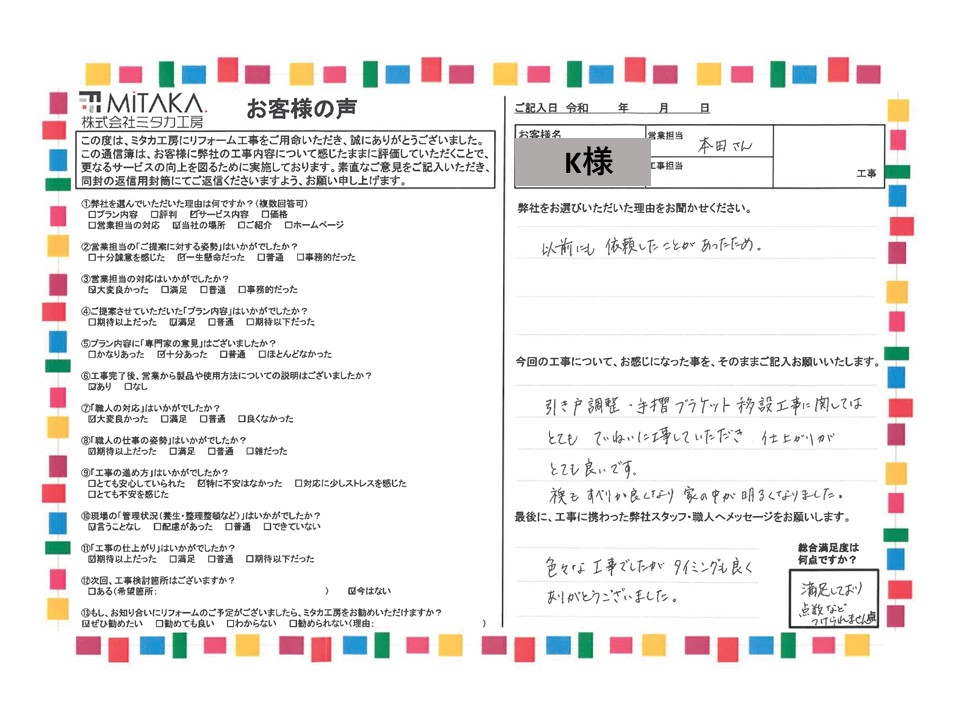 MiTAKA.
株式会社ミタカ工房
お客様の声
この度は、ミタカ工房にリフォーム工事をご用命いただき、誠にありがとうございました。
この通信簿は、お客様に弊社の工事内容について感じたままに評価していただくことで、
更なるサービスの向上を図るために実施しております。素直なご意見をご記入いただき、
同封の返信用封筒にてご返信くださいますよう、お願い申し上げます。
①弊社を選んでいただいた理由は何ですか?(複数回答可)
□プラン内容 □評判 ☑サービス内容 □価格
□営業担当の対応 ☑当社の場所 □ご紹介 □ホームページ
②営業担当の「ご提案に対する姿勢」はいかがでしたか?
□十分誠意を感じた ☑一生懸命だった □普通 □事務的だった
③営業担当の対応はいかがでしたか?
☑大変良かった □満足 □普通 □事務的だった
④ご提案させていただいた「プラン内容」はいかがでしたか?
□期待以上だった ☑満足 □普通 □期待以下だった
⑤プラン内容に「専門家の意見」はございましたか?
□かなりあった ☑十分あった □普通 □ほとんどなかった
⑥工事完了後、営業から製品や使用方法についての説明はございましたか?
☑あり □なし
⑦「職人の対応」はいかがでしたか?
☑大変良かった □満足 □普通 □良くなかった
⑧「職人の仕事の姿勢」はいかがでしたか?
☑期待以上だった □満足 □普通 □雑だった
⑨「工事の進め方」はいかがでしたか?
□とても安心していられた ☑特に不安はなかった □対応に少しストレスを感じた
□とても不安を感じた
⑩現場の「管理状況(養生・整理整頓など)」はいかがでしたか?
☑言うことなし □配慮があった □普通 □できていない
⑪「工事の仕上がり」はいかがでしたか?
☑期待以上だった □満足 □普通 □期待以下だった
⑫次回、工事検討箇所はございますか?
□ある(希望箇所: ) ☑今はない
⑬もし、お知り合いにリフォームのご予定がございましたら、ミタカ工房をお勧めいただけますか?
☑ぜひ勧めたい □勧めても良い □わからない □勧められない(理由: )
ご記入日 令和 年 月 日
お客様名
K様
営業担当
本田さん
工事担当
工事
弊社をお選びいただいた理由をお聞かせください。
以前にも依頼したことがあったため。
今回の工事について、お感じになった事を、そのままご記入お願いいたします。
引き戸調整・手摺ブラケット移設工事に関しては
とても ていねいに工事していただき 仕上がりが
とても良いです。
襖も すべりが良くなり 家の中が明るくなりました。
最後に、工事に携わった弊社スタッフ・職人へメッセージをお願いします。
色々な工事でしたが タイミングも良く
ありがとうございました。
総合満足度は
何点ですか?
満足しており
点数など
つけられません点